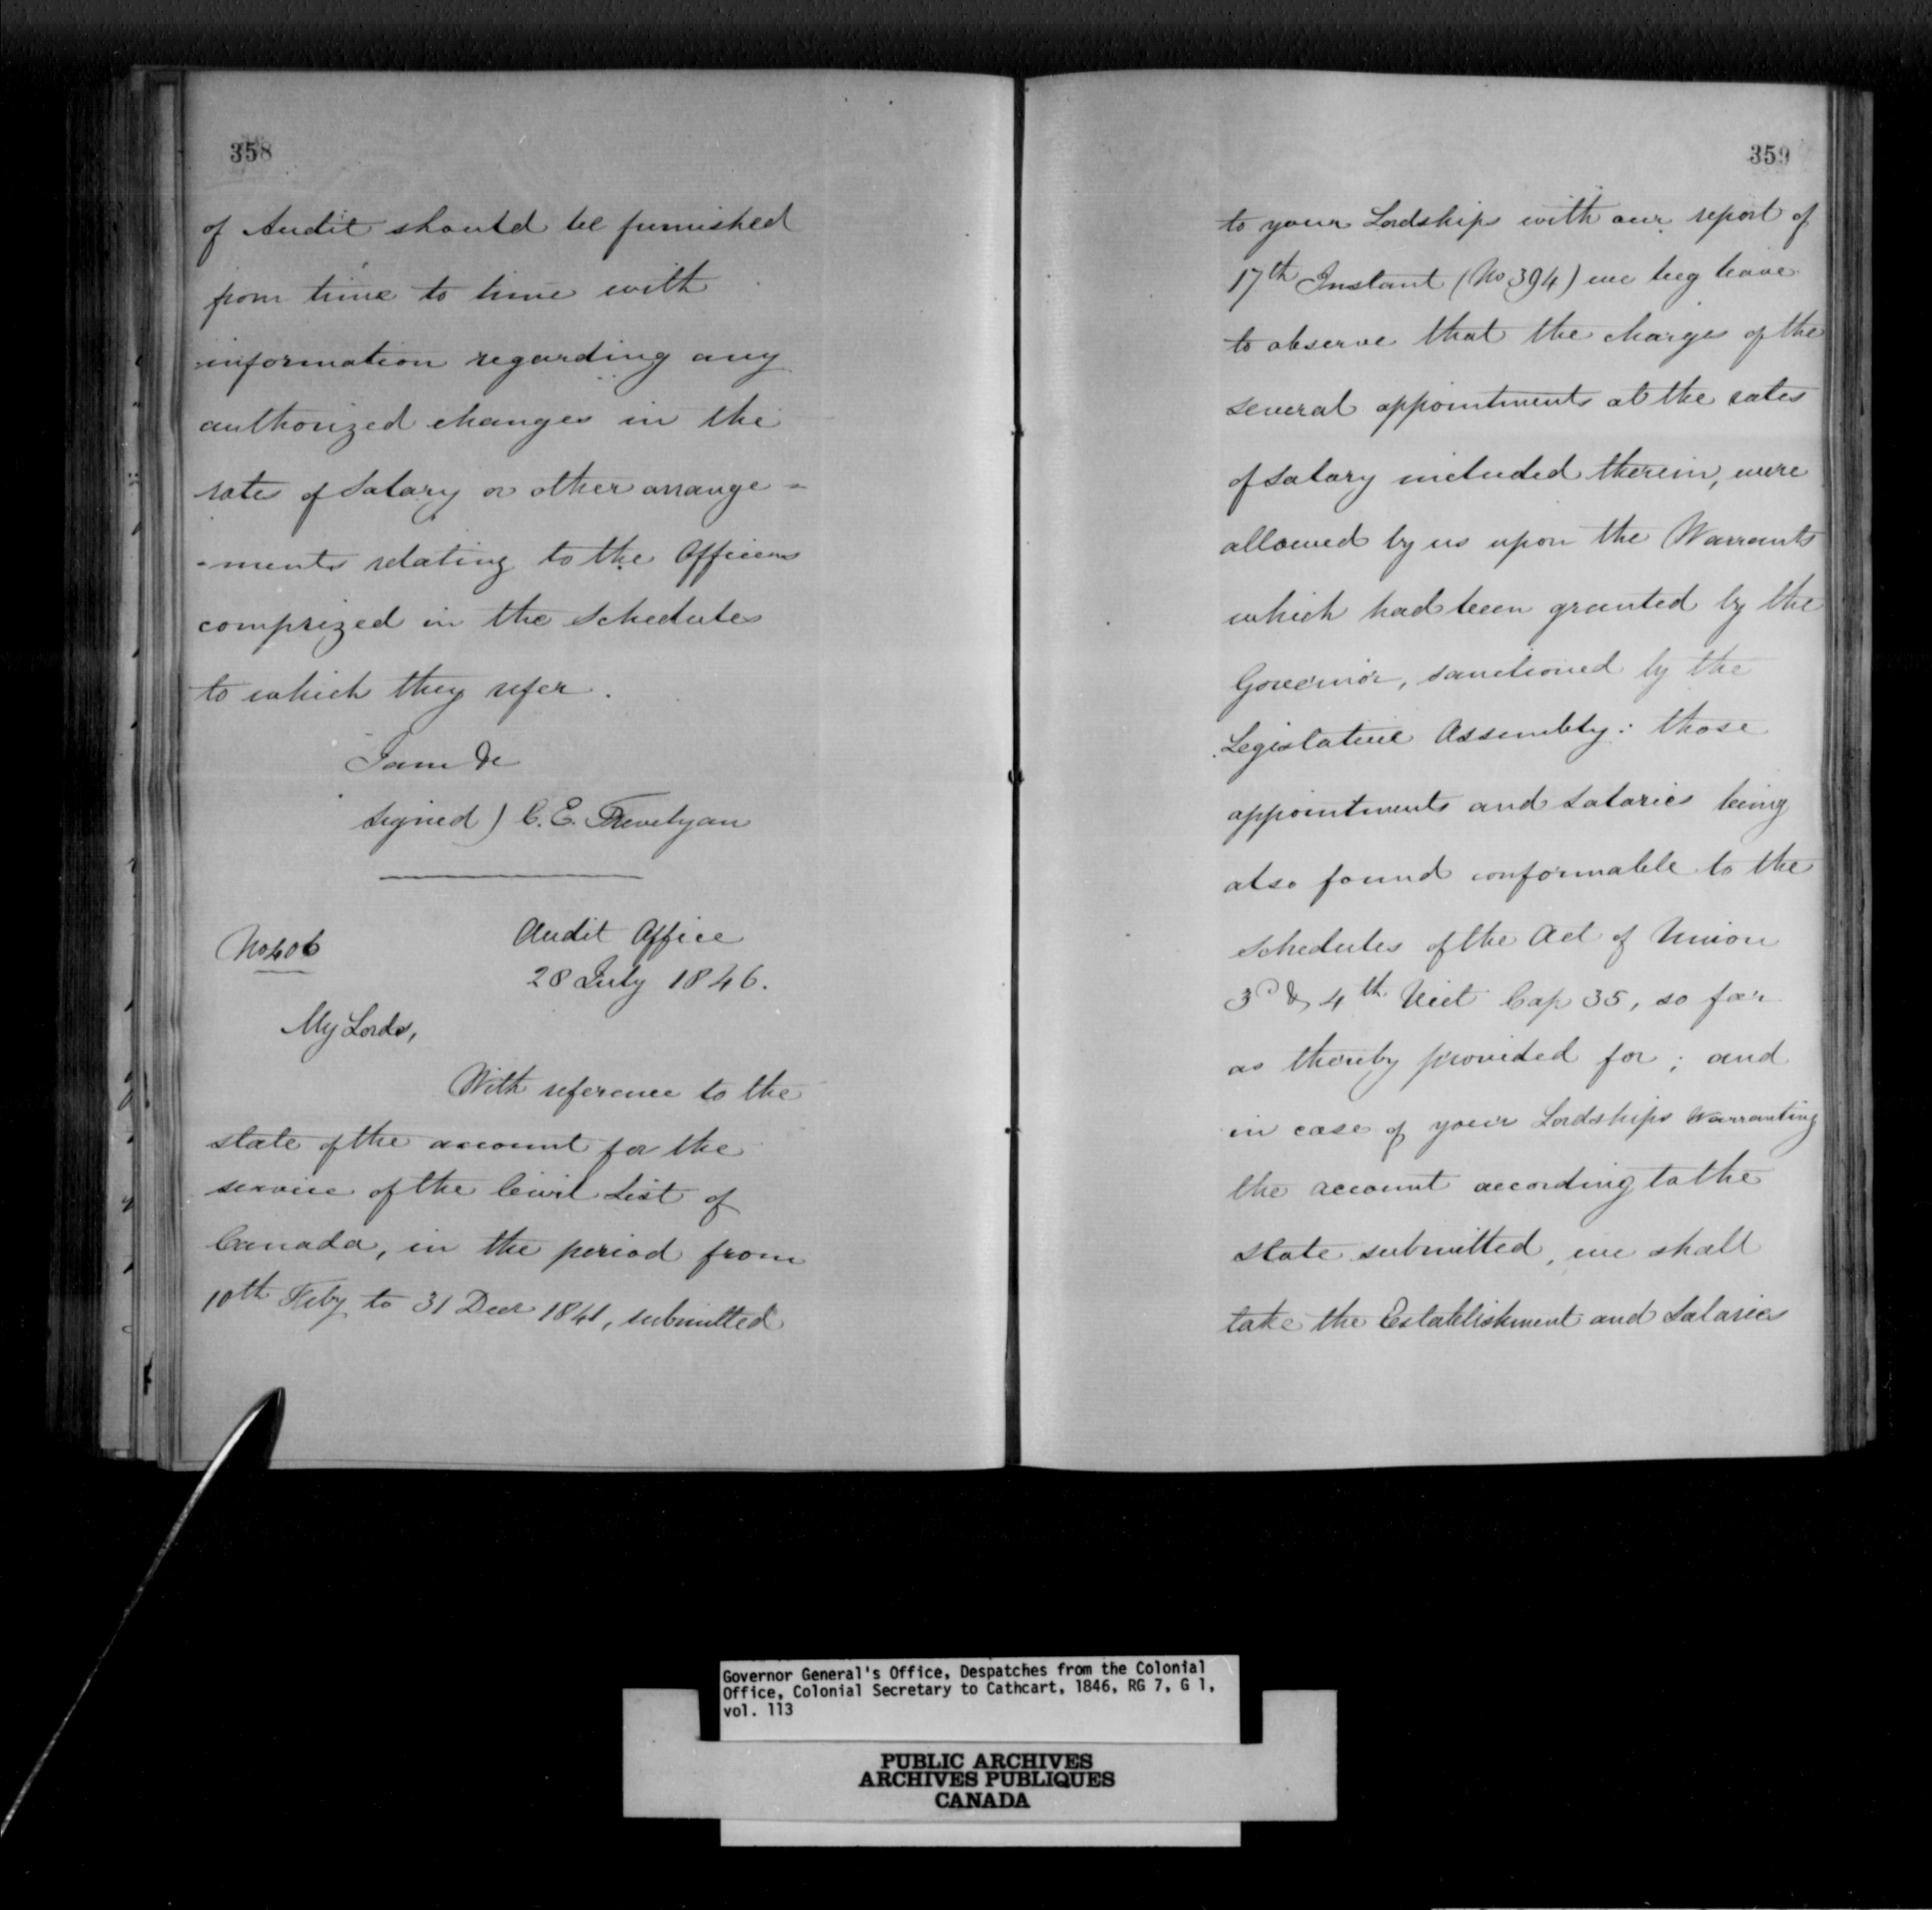 358
of Audit should be furnished
from time to time with
information regarding any
authorized changes in the
rates of Salary or other arrange=
-ments relating to the Officers
comprized in the Schedules
to which they refer.
I am &c
signed) C. E. Trevelyan
No 406
Audit Office
28 July 1846.
My Lords,
With reference to the
state of the account for the
service of the Civil List of
Canada, in the period from
10th Feby to 31 Decr 1841, submitted
359
to your Lordships with our report of
17th Instant (No 394) we beg leave
to observe that the charges of the
several appointments at the rates
of Salary included therein, were
allowed by us upon the Warrants
which had been granted by the
Governor, sanctioned by the
Legislative Assembly: those
appointments and Salaries being
also found conformable to the
Schedules of the Act of Union
3d & 4th Vict Cap 35, so far
as thereby provided for; and
in case of your Lordships Warranting
the account according to the
State submitted, we shall
take the Establishment and Salaries
Governor General's Office, Despatches from the Colonial
Office, Colonial Secretary to Cathcart, 1846, RG 7, G 1,
vol. 113
PUBLIC ARCHIVES
ARCHIVES PUBLIQUES
CANADA